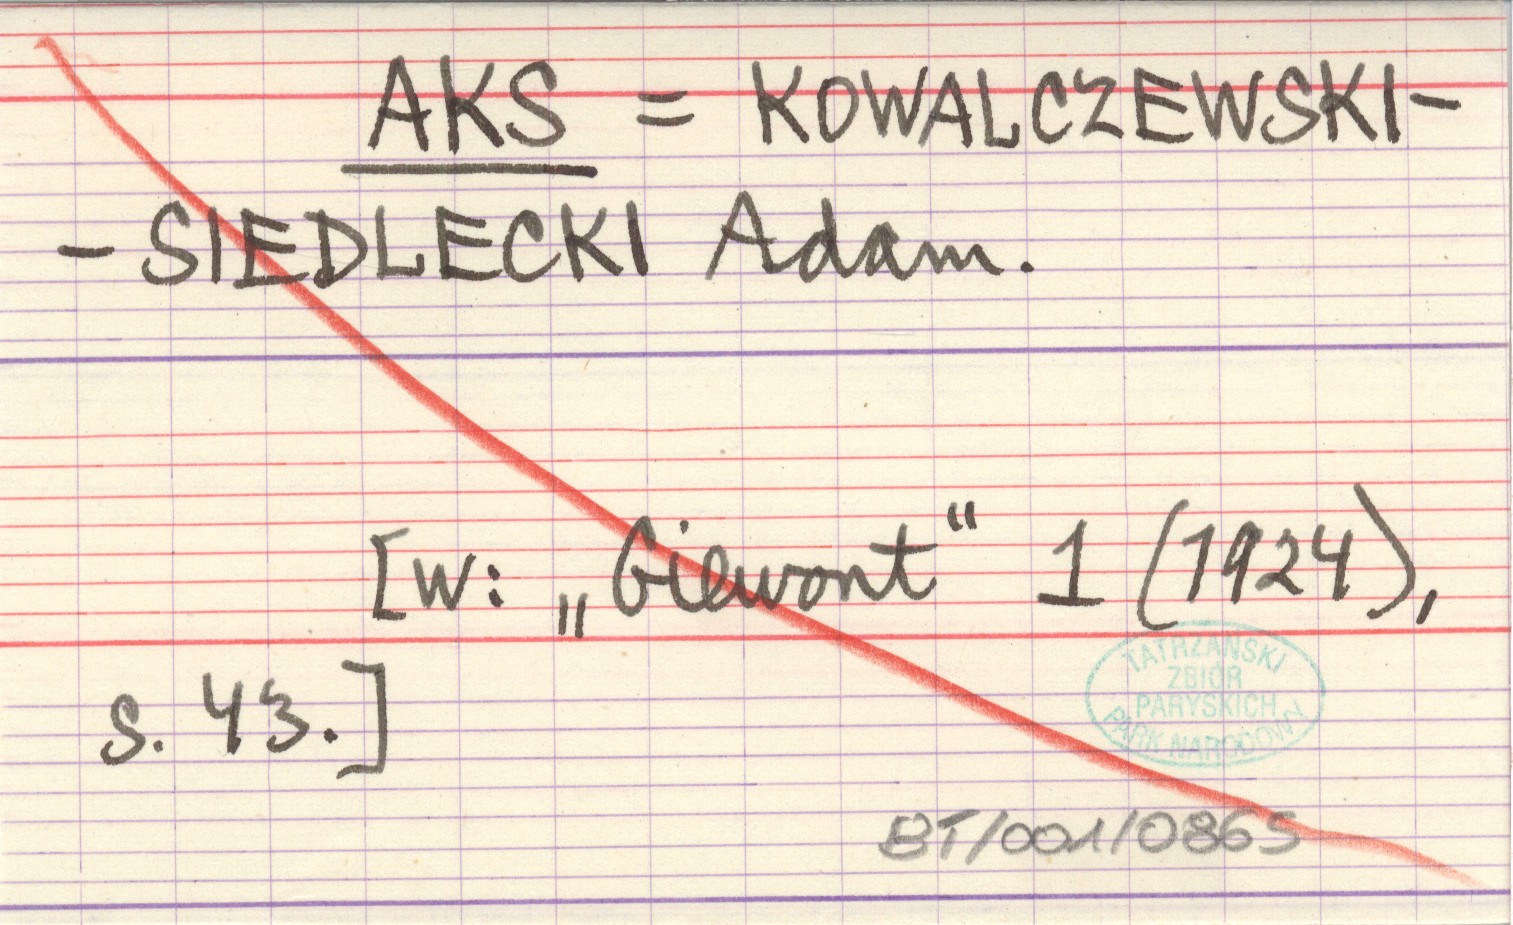 AKS = KOWALCZEWSKI-
-SIEDLECKI Adam.
[w: „Giewont“ 1 (1924),
s. 43.]
TATRZAŃSKI
ZBIÓR
PARYSKICH
PARK NARODOWY
BT/001/0865